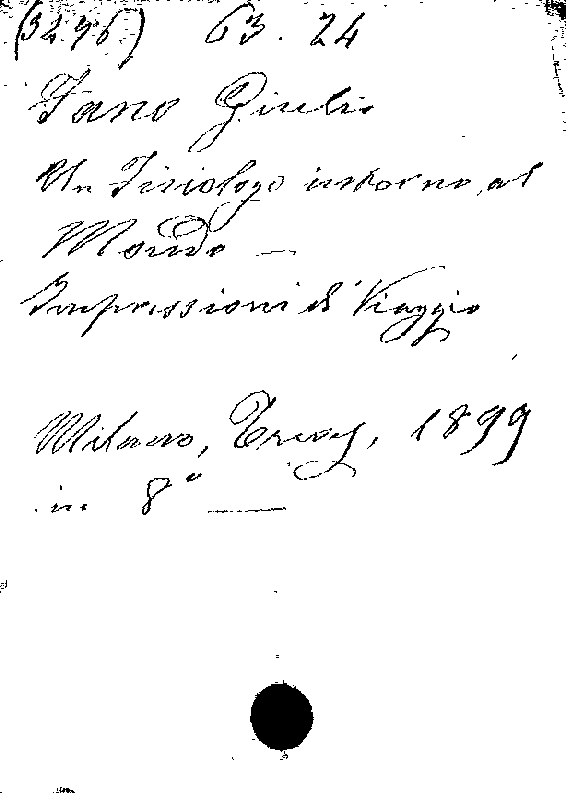 (3496) 63. 24
Fano Giulio
Un Fisiologo intorno al
Mondo —
Impressioni di Viaggio
Milano, Treves, 1899
in 8° —